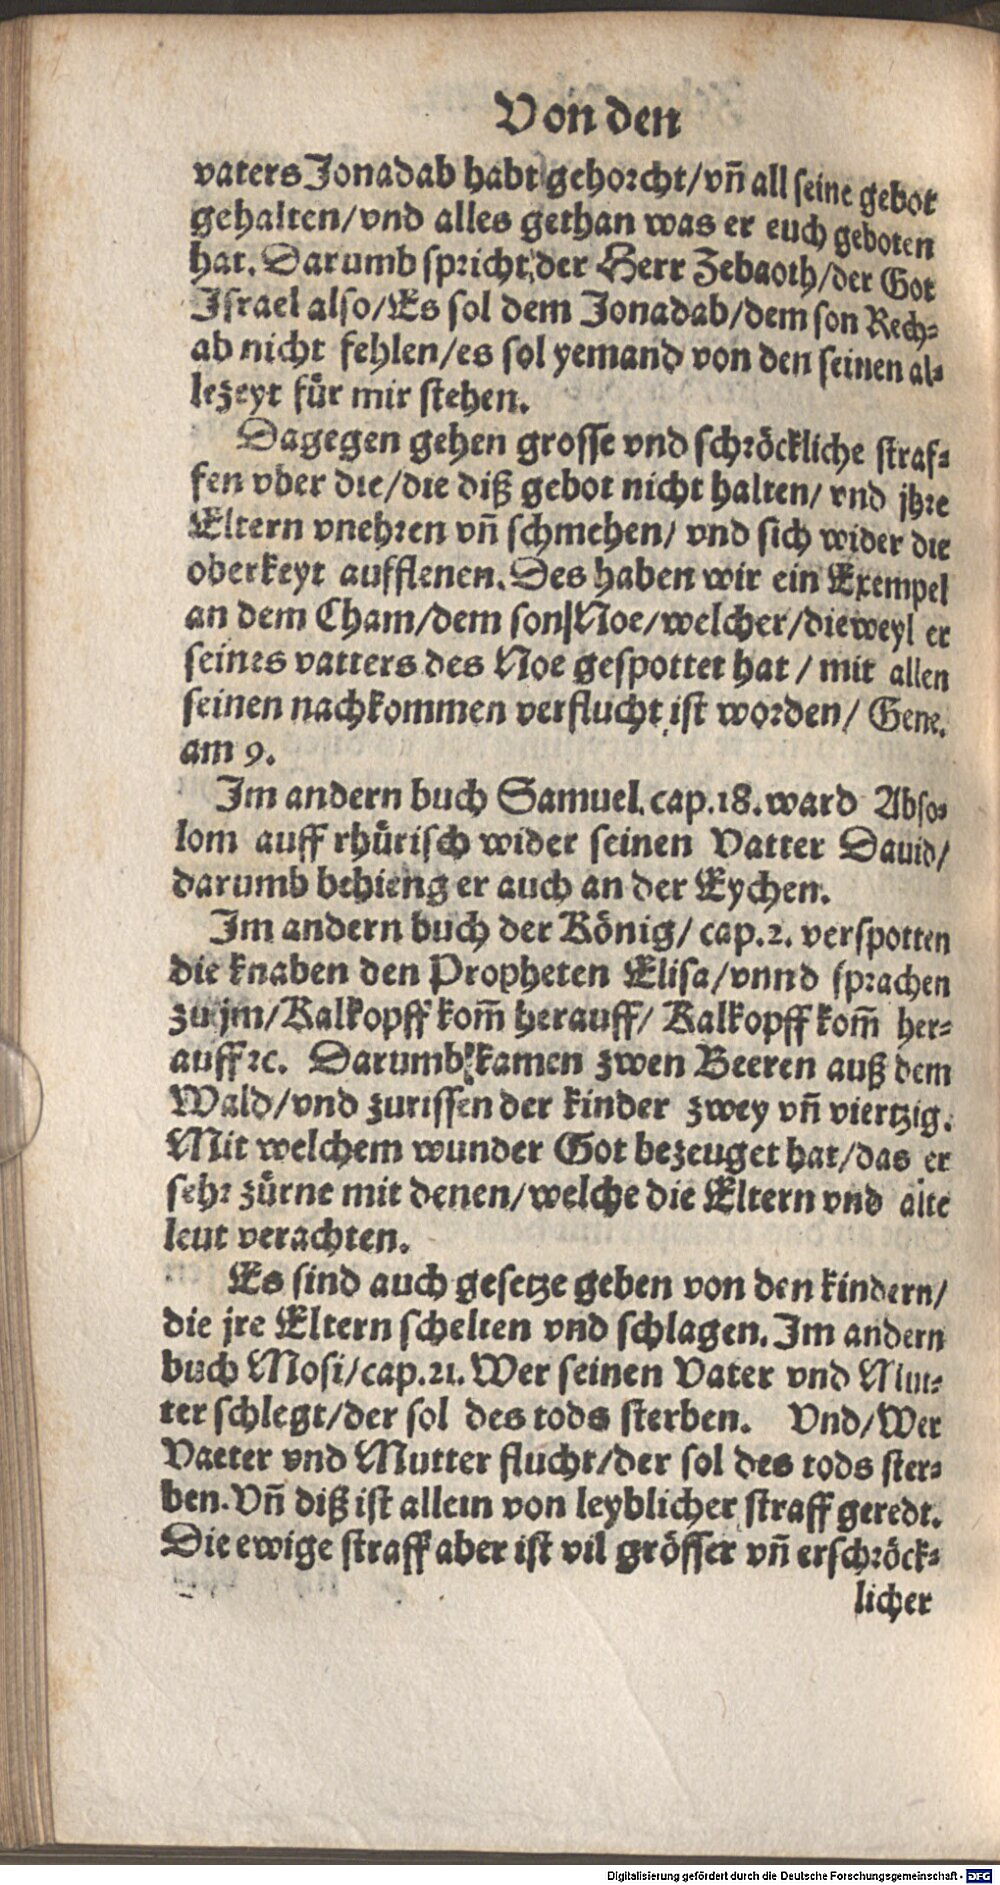 Von den
vaters Jonadab habt gehorcht/vñ all seine gebot
gehalten/vnd alles gethan was er euch geboten
hat. Darumb spricht der Herr Zebaoth/der Got
Israel also/Es sol dem Jonadab/dem son Rech-
ab nicht fehlen/es sol yemand von den seinen al-
lezeyt für mir stehen.
Dagegen gehen grosse vnd schröckliche straf-
fen vber die/die diß gebot nicht halten/ vnd jhre
Eltern vnehren vñ schmehen/ vnd sich wider die
oberkeyt aufflenen. Des haben wir ein Exempel
an dem Cham/dem son Noe/welcher/dieweyl er
seines vatters des Noe gespottet hat/ mit allen
seinen nachkommen verflucht ist worden/ Gene.
am 9.
Im andern buch Samuel. cap.18. ward Abso-
lom auff rhürisch wider seinen Vatter Dauid/
darumb behieng er auch an der Eychen.
Im andern buch der König/ cap.2. verspotten
die knaben den Propheten Elisa/vnnd sprachen
zu jm/Kalkopff kom̃ herauff/ Kalkopff kom̃ her-
auff ꝛc. Darumb kamen zwen Beeren auß dem
Wald/vnd zurissen der kinder zwey vñ viertzig.
Mit welchem wunder Got bezeuget hat/das er
sehr zürne mit denen/welche die Eltern vnd alte
leut verachten.
Es sind auch gesetze geben von den kindern/
die jre Eltern schelten vnd schlagen. Im andern
buch Mosi/cap.21. Wer seinen Vater vnd Mut-
ter schlegt/der sol des tods sterben. Vnd/Wer
Vaeter vnd Mutter flucht/der sol des tods ster-
ben. Vñ diß ist allein von leyblicher straff geredt.
Die ewige straff aber ist vil grösser vñ erschröck-
licher
Digitalisierung gefördert durch die Deutsche Forschungsgemeinschaft - DFG